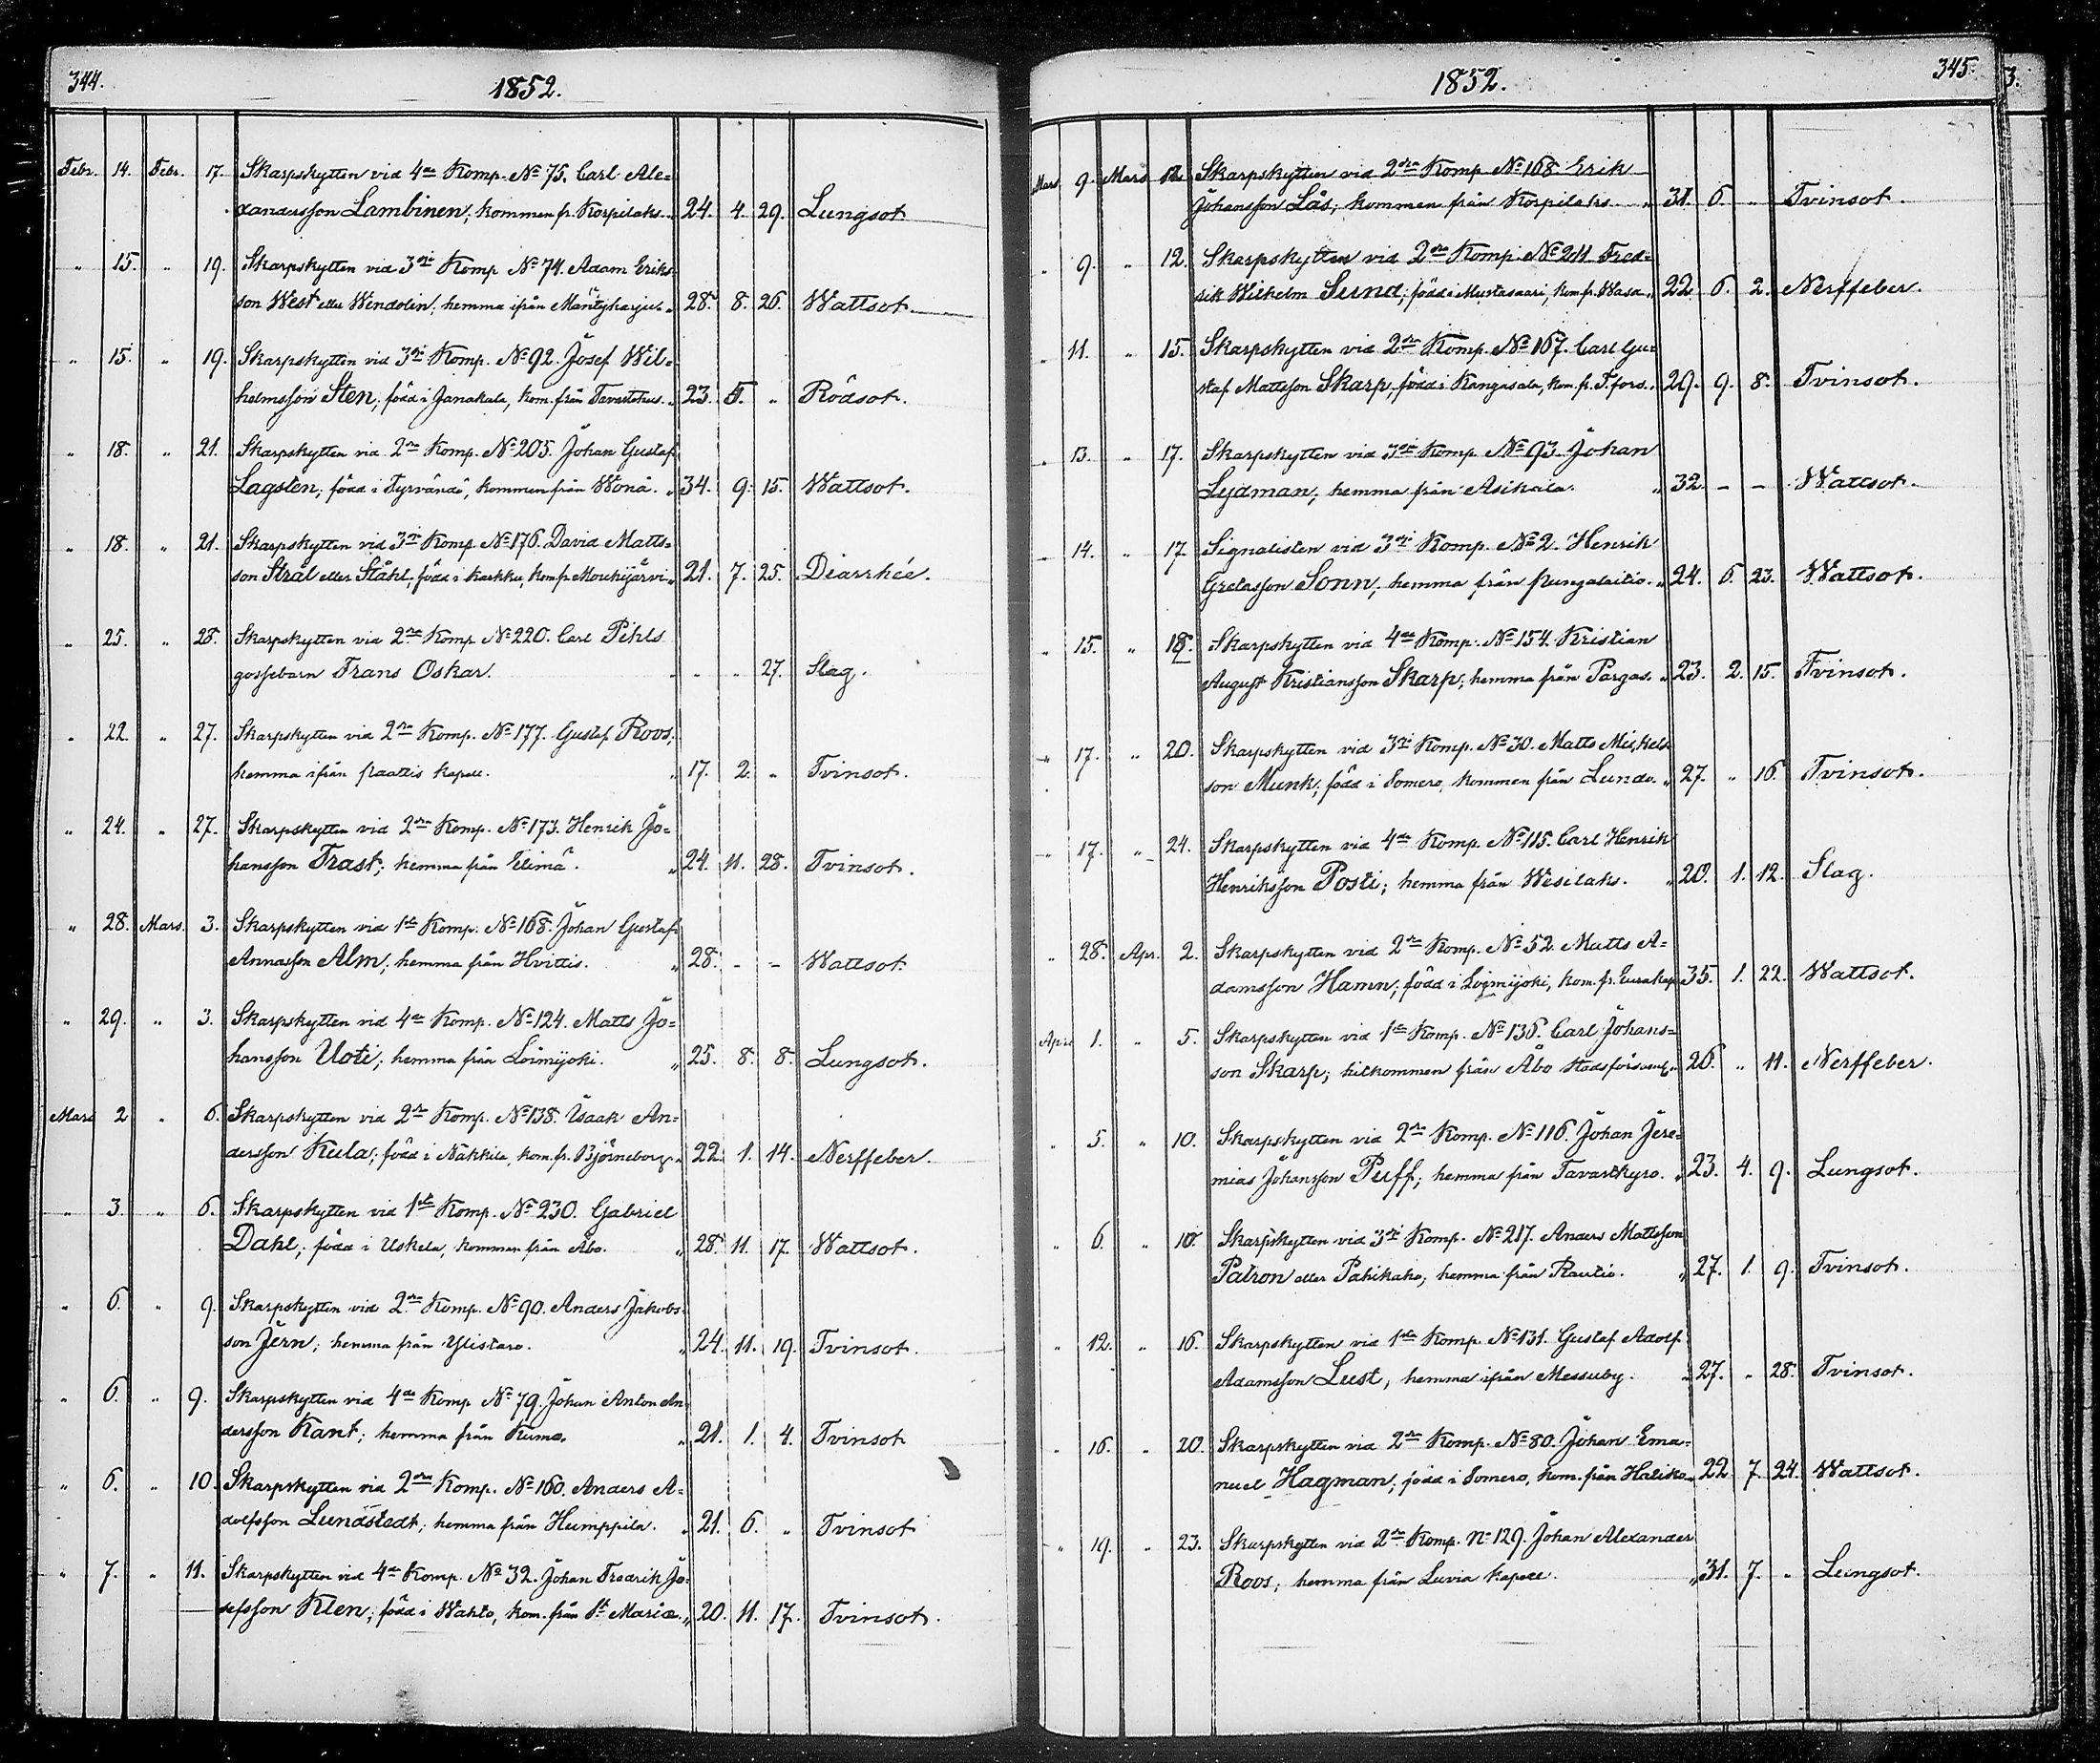 344.
1852.
Febr. 14. Febr. 17. Skarpskytten vid 4de Komp. No 75. Carl Ale=
xandersson Lambinen; kommen fr. Korpilaks. „ 24. 4. 29. Lungsot
„ 15. „ 19. Skarpskytten vid 3dje Komp No 74. Adam Eriks
son West eller Wendolin; hemma ifrån Mäntyharju. „ 28. 8. 26. Wattsot.
„ 15. „ 19. Skarpskytten vid 3dje Komp. No 92. Josef Wil=
helmsson Sten; född i Janakala, kom. från Tavastehus. „ 23. 5. „ Rödsot.
„ 18. „ 21. Skarpskytten vid 2dra Komp. No 205. Johan Gustaf
Lagsten; född i Tyrvändö, kommen från Wånå. „ 34. 9. 15. Wattsot.
„ 18. „ 21. Skarpskytten vid 3dje Komp. No 176. David Matts=
son Strål eller Ståhl; född i Karkku, kom. fr. Mouhijärvi „ 21. 7. 25. Diarrhée.
„ 25. „ 28. Skarpskytten vid 2dra Komp. No 220. Carl Pihls
gossebarn Frans Oskar. „ „ „ 27. Slag.
„ 22. „ 27. Skarpskytten vid 2dra Komp. No 177. Gustaf Roos;
hemma ifrån Paattis kapell. „ 17. 2. „ Tvinsot.
„ 24. „ 27. Skarpskytten vid 2dra Komp. No 173. Henrik Jo=
hansson Trast; hemma från Elimä. „ 24. 11. 28. Tvinsot.
„ 28. Mars. 3. Skarpskytten vid 1sta Komp. No 168. Johan Gustaf
Annasson Alm; hemma från Hvittis. „ 28. – – Wattsot.
„ 29. „ 3. Skarpskytten vid 4de Komp. No 124. Matts Jo=
hansson Uoti; hemma från Loimijoki. „ 25. 8. 8. Lungsot.
Mars 2 „ 6. Skarpskytten vid 2dra Komp. No 138. Isaak An=
dersson Kula; född i Nakkila, kom. fr. Björneborg. „ 22. 1. 14. Nerffeber.
„ 3. „ 6. Skarpskytten vid 1sta Komp. No 230. Gabriel
Dahl; född i Uskela, kommen från Åbo. „ 28. 11. 17. Wattsot.
„ 6. „ 9. Skarpskytten vid 2dra Komp. No 90. Anders Jakobs-
son Jern; hemma från Ylistaro. „ 24. 11. 19. Tvinsot.
„ 6. „ 9. Skarpskytten vid 4de Komp No 79. Johan Anton An
dersson Kant; hemma från Kumo. „ 21. 1. 4. Tvinsot
„ 6. „ 10. Skarpskytten vid 2dra Komp. No 160. Anders A=
dolfsson Lundstedt; hemma från Humppila. „ 21. 6. „ Tvinsot
„ 7. „ 11. Skarpskytten vid 4de Komp. No 32. Johan Fredrik Jo=
sefsson Klen; född i Wahto, kom. från St Mariæ. „ 20. 11. 17. Tvinsot.
1852.
345.
Mars 9. Mars 12. Skarpskytten vid 2dra Komp No 168 Erik
Johansson Lås; kommen från Korpilaks. „ 31. 6. „ Tvinsot.
„ 9. „ 12. Skarpskytten vid 2dra Komp. No 211 Fred=
rik Wilhelm Sund; född i Mustasaari, kom. fr. Wasa. „ 22. 6. 2. Nerffeber.
„ 11. „ 15. Skarpskytten vid 2dra Komp. No 167. Carl Gu=
staf Mattsson Skarp; född i Kangasala, kom. fr. T.fors. „ 29. 9. 8. Tvinsot.
„ 13. „ 17. Skarpskytten vid 3dje Komp No 93. Johan
Lydman; hemma från Asikala. „ 32. – – Wattsot.
„ 14. „ 17. Signalisten vid 3dje Komp. No 2. Henrik
Gretasson Sonn; hemma från Pungalaitio. „ 24. 6. 23. Wattsot.
„ 15. „ 18. Skarpskytten vid 4de Komp. No 154. Kristian
August Kristiansson Skarp; hemma från Pargas. „ 23. 2. 15. Tvinsot.
„ 17. „ 20. Skarpskytten vid 3dje Komp. No 30. Matts Mickels
son Munk; född i Somero, kommen från Lundo. „ 27. „ 16. Tvinsot.
„ 17. „ 24. Skarpskytten vid 4de Komp. No 115. Carl Henrik
Henriksson Posti; hemma från Wesilaks. „ 20. 1. 12. Slag.
„ 28. Apr. 2. Skarpskytten vid 2dra Komp. No 52. Matts A=
damsson Hamn; född i Loimijoki, kom. fr. Eura kap. 35. 1. 22. Wattsot.
April 1. „ 5. Skarpskytten vid 1sta Komp. No 136. Carl Johans=
son Skarp; hitkommen från Åbo stadsförsaml. „ 26. „ 11. Nerffeber.
„ 5. „ 10. Skarpskytten vid 2dra Komp. No 116. Johan Jere=
mias Johansson Puff; hemma från Tavastkyro. „ 23. 4. 9. Lungsot.
„ 6. „ 10. Skarpskytten vid 3dje Komp. No 217. Anders Mattsson
Patron eller Pahikaho; hemma från Rautio. „ 27. 1. 9. Tvinsot.
„ 12. „ 16. Skarpskytten vid 1sta Komp. No 131. Gustaf Adolf
Adamsson Lust; hemma ifrån Messuby. „ 27. „ 28. Tvinsot.
„ 16. „ 20. Skarpskytten vid 2dra Komp. No 80. Johan Ema=
nuel Hagman; född i Somero, kom. från Haliko. „ 22. 7. 24. Wattsot.
„ 19. „ 23. Skarpskytten vid 2dra Komp. No 129. Johan Alexander
Roos; hemma från Luvia kapell. „ 31. 7. „ Lungsot.